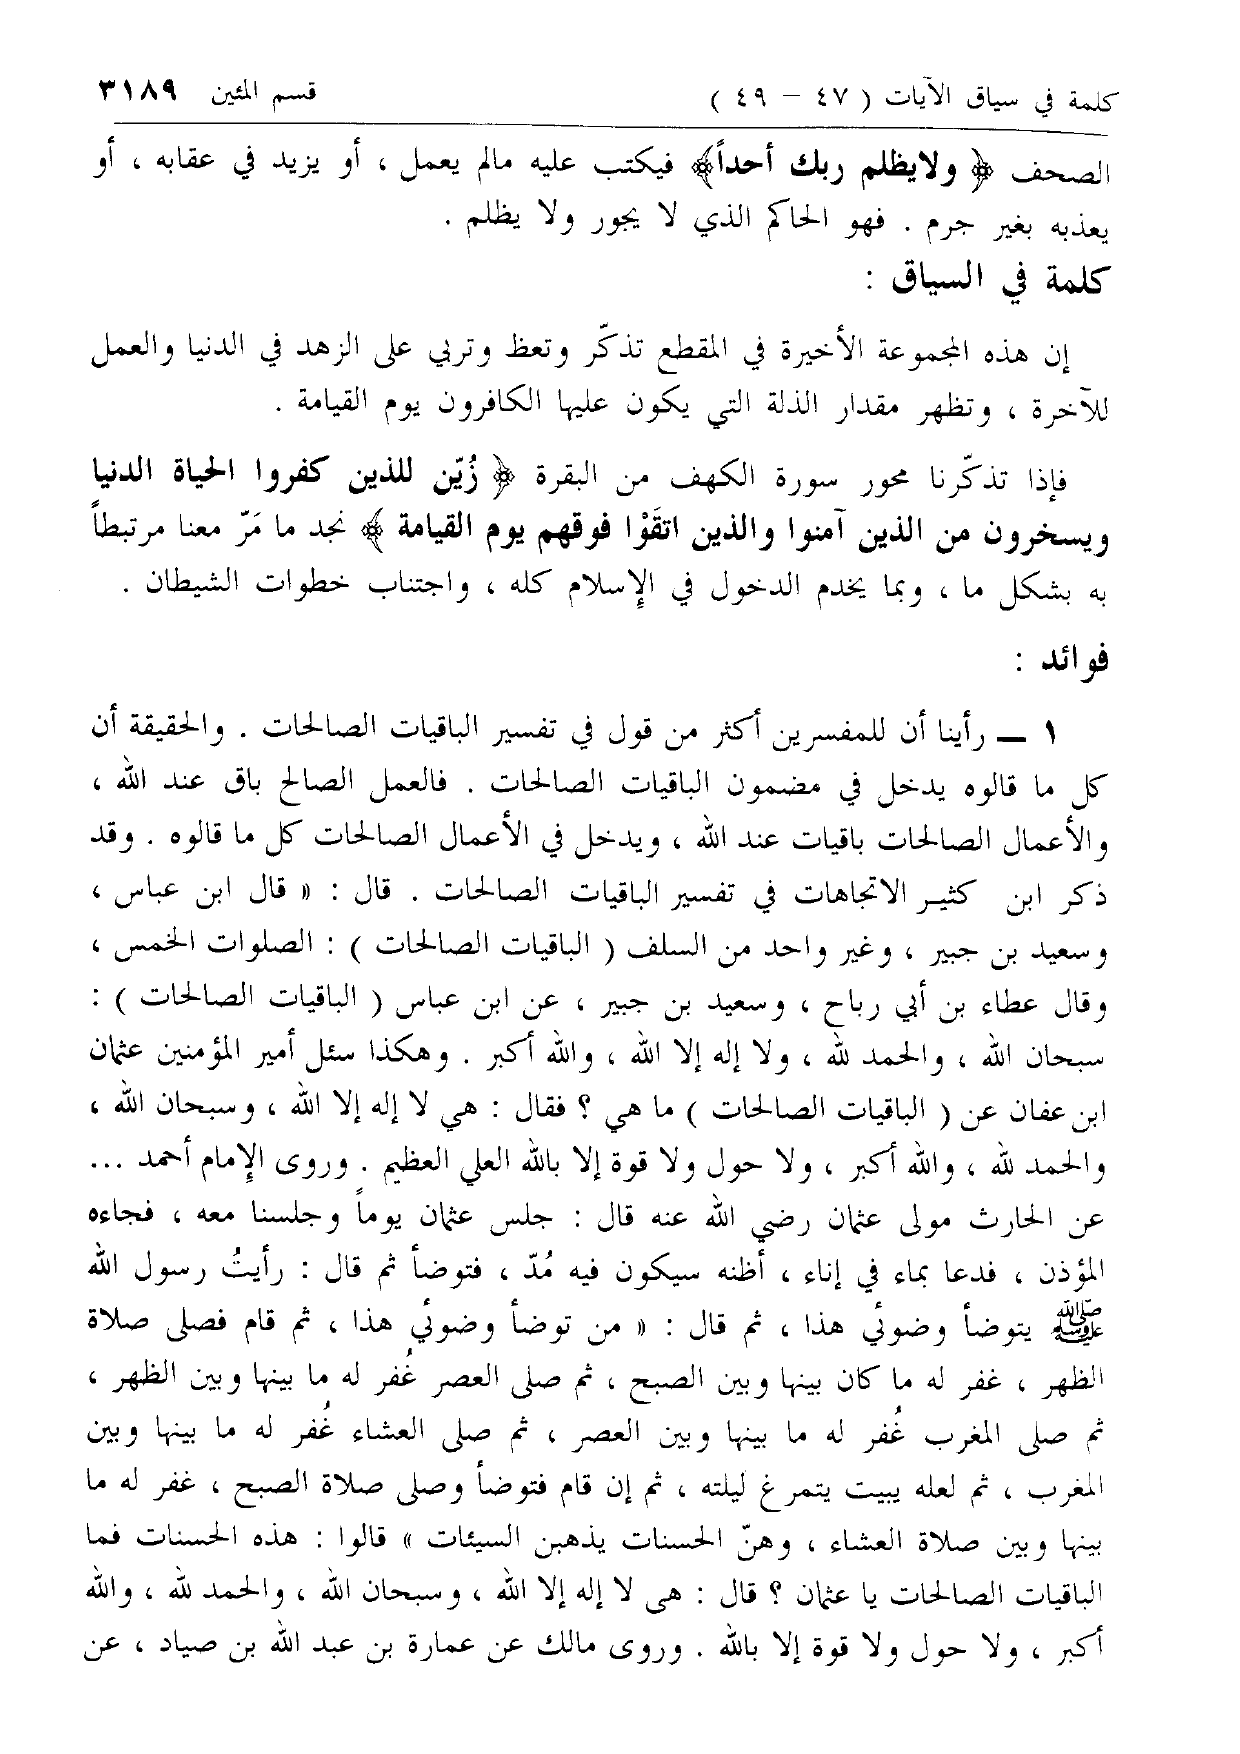 كلمة في سياق الآيات ( ٤٧ – ٤٩ ) قسم المئين ٣١٨٩
الصحف ﴿ ولايظلم ربك أحداً﴾ فيكتب عليه مالم يعمل ، أو يزيد في عقابه ، أو
يعذبه بغير جرم . فهو الحاكم الذي لا يجور ولا يظلم .
كلمة في السياق :
إن هذه المجموعة الأخيرة في المقطع تذكّر وتعظ وتربي على الزهد في الدنيا والعمل
للآخرة ، وتظهر مقدار الذلة التي يكون عليها الكافرون يوم القيامة .
فإذا تذكّرنا محور سورة الكهف من البقرة ﴿ زُيّن للذين كفروا الحياة الدنيا
ويسخرون من الذين آمنوا والذين اتقَوْا فوقهم يوم القيامة ﴾ نجد ما مَرّ معنا مرتبطاً
به بشكل ما ، وبما يخدم الدخول في الإسلام كله ، واجتناب خطوات الشيطان .
فوائد :
١ ــ رأينا أن للمفسرين أكثر من قول في تفسير الباقيات الصالحات . والحقيقة أن
كل ما قالوه يدخل في مضمون الباقيات الصالحات . فالعمل الصالح باق عند الله ،
والأعمال الصالحات باقيات عند الله ، ويدخل في الأعمال الصالحات كل ما قالوه . وقد
ذكر ابن كثير الاتجاهات في تفسير الباقيات الصالحات . قال : « قال ابن عباس ،
وسعيد بن جبير ، وغير واحد من السلف ( الباقيات الصالحات ) : الصلوات الخمس ،
وقال عطاء بن أبي رباح ، وسعيد بن جبير ، عن ابن عباس ( الباقيات الصالحات ) :
سبحان الله ، والحمد لله ، ولا إله إلا الله ، والله أكبر . وهكذا سئل أمير المؤمنين عثمان
ابن عفان عن ( الباقيات الصالحات ) ما هي ؟ فقال : هي لا إله إلا الله ، وسبحان الله ،
والحمد لله ، والله أكبر ، ولا حول ولا قوة إلا بالله العلي العظيم . وروى الإمام أحمد ...
عن الحارث مولى عثمان رضي الله عنه قال : جلس عثمان يوماً وجلسنا معه ، فجاءه
المؤذن ، فدعا بماء في إناء ، أظنه سيكون فيه مُدّ ، فتوضأ ثم قال : رأيتُ رسول الله
ﷺ يتوضأ وضوئي هذا ، ثم قال : « من توضأ وضوئي هذا ، ثم قام فصلى صلاة
الظهر ، غفر له ما كان بينها وبين الصبح ، ثم صلى العصر غُفر له ما بينها وبين الظهر ،
ثم صلى المغرب غُفر له ما بينها وبين العصر ، ثم صلى العشاء غُفر له ما بينها وبين
المغرب ، ثم لعله يبيت يتمرغ ليلته ، ثم إن قام فتوضأ وصلى صلاة الصبح ، غفر له ما
بينها وبين صلاة العشاء ، وهنّ الحسنات يذهبن السيئات » قالوا : هذه الحسنات فما
الباقيات الصالحات يا عثمان ؟ قال : هى لا إله إلا الله ، وسبحان الله ، والحمد لله ، والله
أكبر ، ولا حول ولا قوة إلا بالله . وروى مالك عن عمارة بن عبد الله بن صياد ، عن